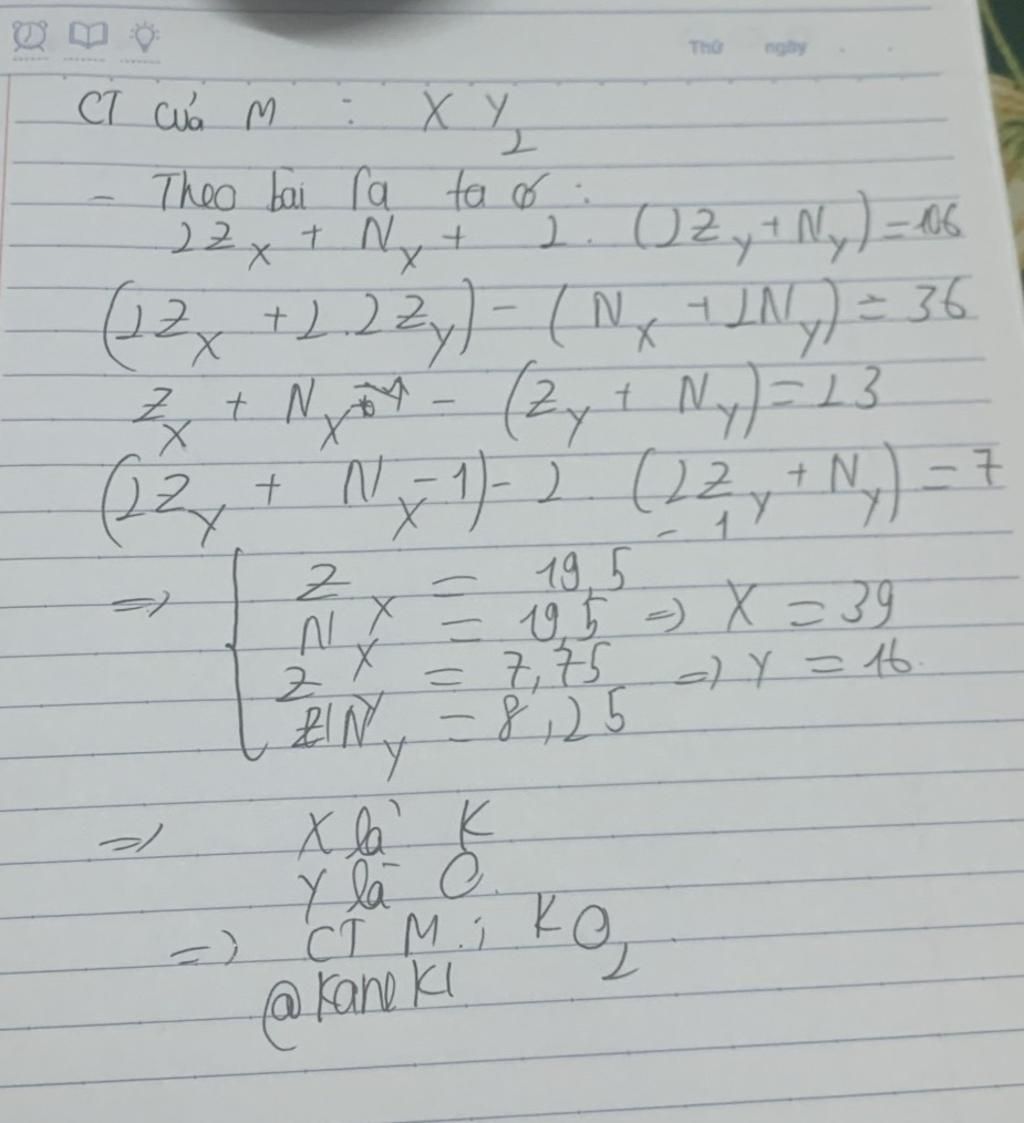 Thứ ngày
CT của M : XY₂
- Theo bài ra ta có :
2Z_X + N_X + 2. (2Z_Y + N_Y) = 106
(2Z_X + 2.2Z_Y) - (N_X + 2N_Y) = 36
Z_X + N_X - (Z_Y + N_Y) = 23
(2Z_Y + N_X - 1) - 2. (2Z_Y + N_Y) = 7
- 1
=> { Z_X = 19,5
N_X = 19,5 => X = 39
Z_Y = 7,75 => Y = 16.
N_Y = 8,25
=> X là K
Y là O.
=> CT M : KO₂
@KaneKI